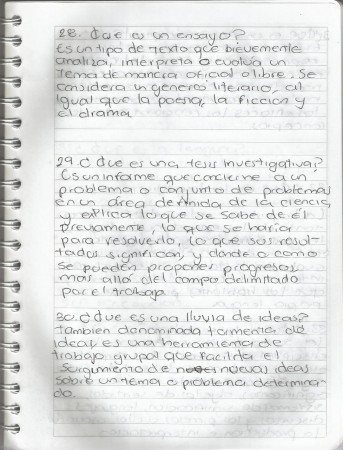 28. Que es un ensayo?
Es un tipo de texto que brevemente
analiza, interpreta o evalúa un
tema de manera oficial o libre. Se
considera un genero literario, al
igual que la poesia, la ficcion y
el drama
29. ¿Que es una tesis investigativa?
Es un informe que concierne a un
problema o conjunto de problemas
en un área definida de la ciencia,
y explica lo que se sabe de él
previamente, lo que se haría
para resolverlo, lo que sus resul-
tados significan, y dónde o como
se pueden proponer progresos,
mas allá del campo delimitado
por el trabajo
30. ¿Que es una lluvia de ideas?
Tambien denominada tormenta de
ideas, es una herramienta de
trabajo grupal que facilita el
surgimiento de nuevas ideas
sobre un tema o problema determina-
do.